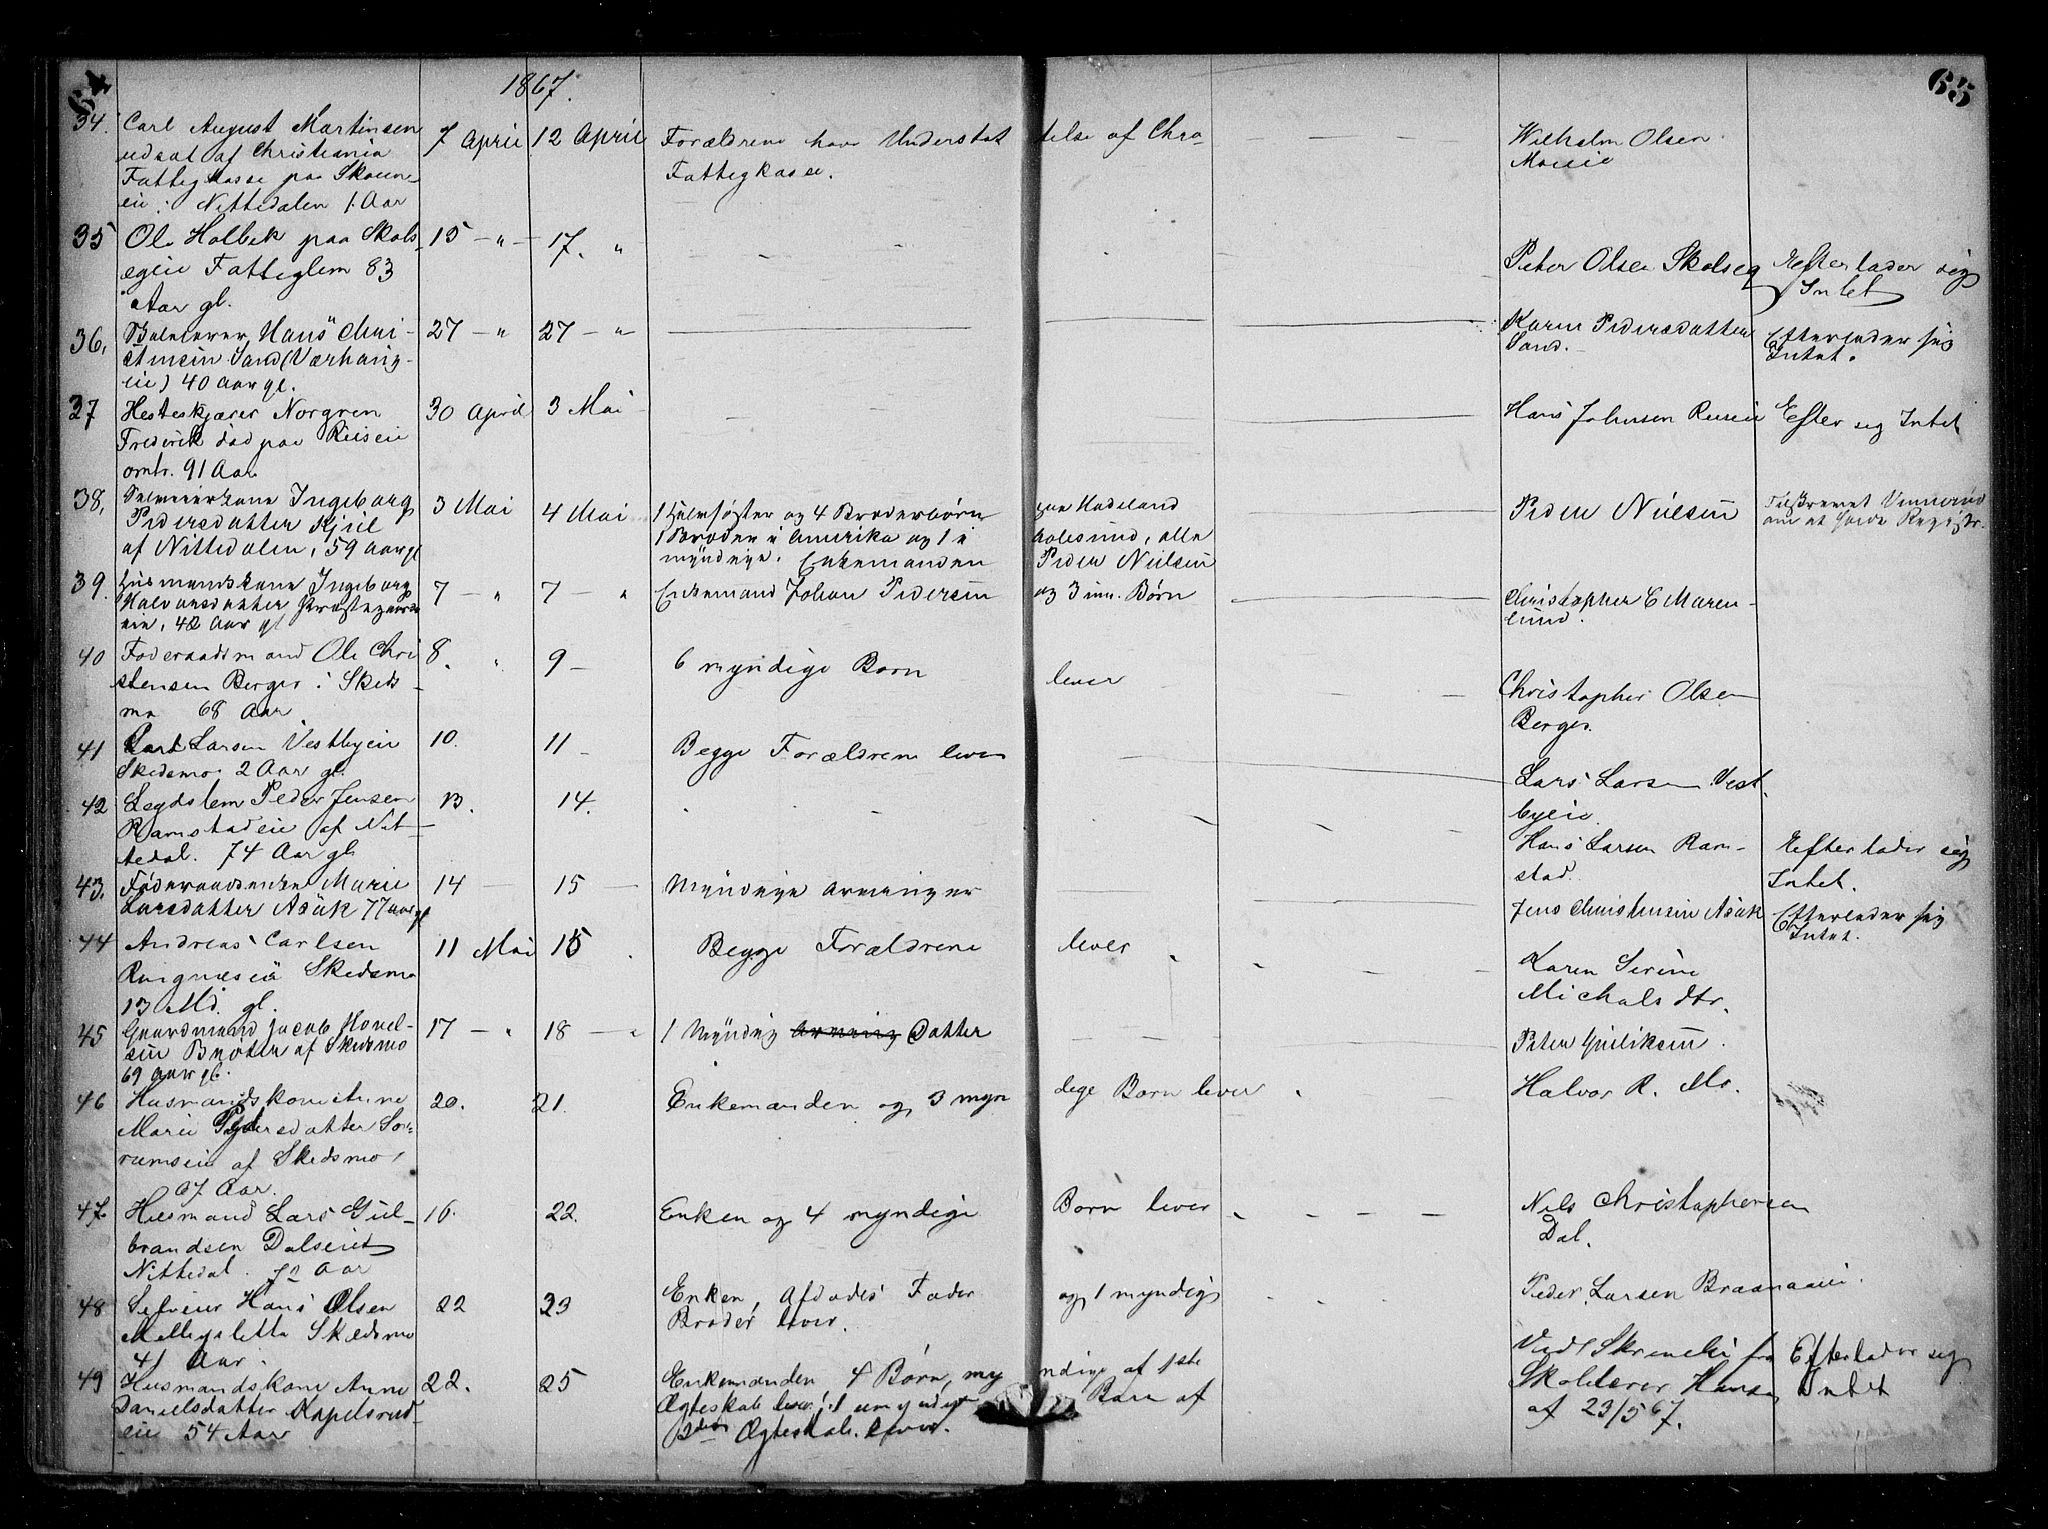 64
1867.
65
34. Carl August Martinsen 7 April 12 April Forældrene have Understøt telse af Chra — — — Wilhelm Olsen
udsat af Christiania Fattigkasse.
Fattigkasse paa Skoun-
eie i Nittedalen 1 Aar
35 Ole Holbek paa Skols- 15 — " — 17. " Peter Olsen Skolseg Efterlader sig
egeie Fattiglem 83 Intet
Aar gl.
36, Hans Chri- 27 — " 27 — " — — — Karen Pedersdatter Efterlader sig
stensen Sand (Værhaug- Sand. Intet.
eie) 40 Aar gl.
37 Hesteskjærer Norgren 30 April 3 Mai — — — Hans Johnsen Efter sig Intet
Frederik død paa
omtr. 91 Aar
38, Selveierkone Ingeborg 3 Mai 4 Mai 1 Halvsøster og 4 Broderbørn paa Hadeland — — Peder Nielsen
Pedersdatter Kjul 1 Broder i Amerika og 1 i Aalesund, alle
af Nittedalen, 59 Aar gl myndige. Enkemanden Peder Nielsen
39. Husmandskone Ingeborg 7 — " 7 — " Enkemand Johan Pedersen og 3 um. Børn — Christopher C Maren-
Halvorsdatter lund.
eie, 42 Aar gl
40 Foderaadsmand Ole Chri 8. " 9 — 6 myndige Børn lever — — Christopher Olsen
stensen Berger i Skeds- Berger.
mo 68 Aar
41 Larsen Vestbyeie 10. 11 — Begge Forældrene lever — Lars Larsen Vest-
Skedsmo 2 Aar gl. byeie.
42 Legdslem Peder Jensen 13. 14. Hans Larsen Ram- Efterlader sig
Ramstadeie af Nit- stad. Intet.
tedal. 74 Aar gl.
43. Føderaadsenke Marie 14 — 15 — Myndige Arvinger — — Jens Christensen Asak Efterlader sig
Larsdatter Asak 77 Aar gl Intet.
44 Andreas Carlsen 11 Mai 15 Begge Forældrene lever — — Karen Serine
Ringnæseie Skedsmo Michelsdtr.
13 Md. gl.
45 Gaardmand Jacob 17 — " 18 — " 1 Myndig Arving Datter — — —
sen Brøter af Skedsmo
69 Aar gl.
46 Husmandskone Anne 20. 21. Enkemanden og 3 myn dige Børn lever Halvor R. Mo.
Marie Pedersdatter Sø-
rumseie af Skedsmo,
67 Aar.
47. Husmand Lars Gul- 16. 22. Enken og 4 myndige Børn lever — — — Nils Christophersen
brandsen Dalseiet Dal.
Nittedal. 72 Aar
48 Selveier Hans Olsen 22 23 Enken, Afdødes Fader og 1 myndig Peder Larsen
Skedsmo Broder lever.
41 Aar.
49 Husmandskone Anne 22. 25 Enkemanden 4 Børn, my ndige af 1ste Ved Skrivelse fra Efterlader sig
Danielsdatter Kapelsrud- Ægteskab lever; 1 umyndigt Barn af Skolelærer Hansen Intet
eie 54 Aar Ægteskab lever. af 23/5 67.